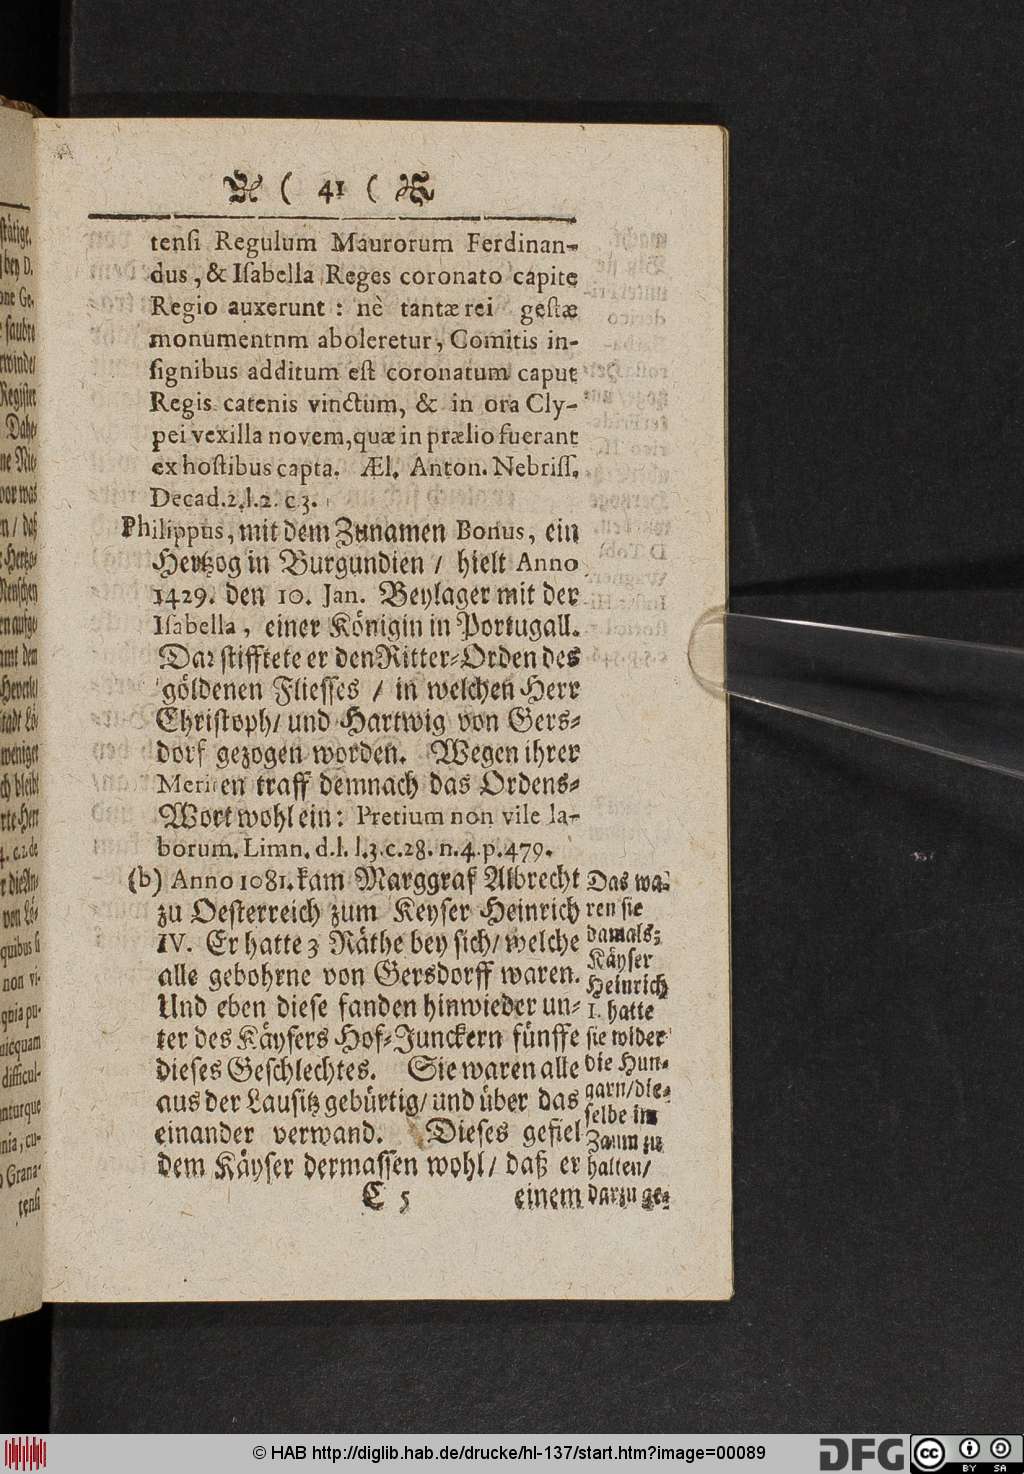 ( 41 (
tensi Regulum Maurorum Ferdinan-
dus, & Isabella Reges coronato capite
Regio auxerunt : nè tantæ rei gestæ
monumentnm aboleretur, Comitis in-
signibus additum est coronatum caput
Regis catenis vinctum, & in ora Cly-
pei vexilla novem, quæ in prælio fuerant
ex hostibus capta. Æl. Anton. Nebriss.
Decad.2.l.2. c 3.
Philippus, mit dem Zunamen Bonus, ein
Hertzog in Burgundien / hielt Anno
1429. den 10. Jan. Beylager mit der
Isabella, einer Königin in Portugall.
Dar stifftete er den Ritter-Orden des
göldenen Fliesses / in welchen Herr
Christoph/ und Hartwig von Gers-
dorf gezogen worden. Wegen ihrer
Meriten traff demnach das Ordens-
Wort wohl ein: Pretium non vile la-
borum. Limn. d.l. l.3.c.28. n.4.p.479.
(b) Anno 1081. kam Marggraf Albrecht
zu Oesterreich zum Keyser Heinrich
IV. Er hatte 3 Räthe bey sich/ welche
alle gebohrne von Gersdorff waren.
Und eben diese fanden hinwieder un-
ter des Käysers Hof-Junckern fünffe
dieses Geschlechtes. Sie waren alle
aus der Lausitz gebürtig/ und über das
einander verwand. Dieses gefiel
dem Käyser dermassen wohl/ daß er
C 5 einem
Das wa-
ren sie
damals;
Käyser
Heinrich
I. hatte
sie wider
die Hun-
garn/die-
selbe im
Zaum zu
halten/
darzu ge-
© HAB http://diglib.hab.de/drucke/hl-137/start.htm?image=00089
DFG
cc BY SA